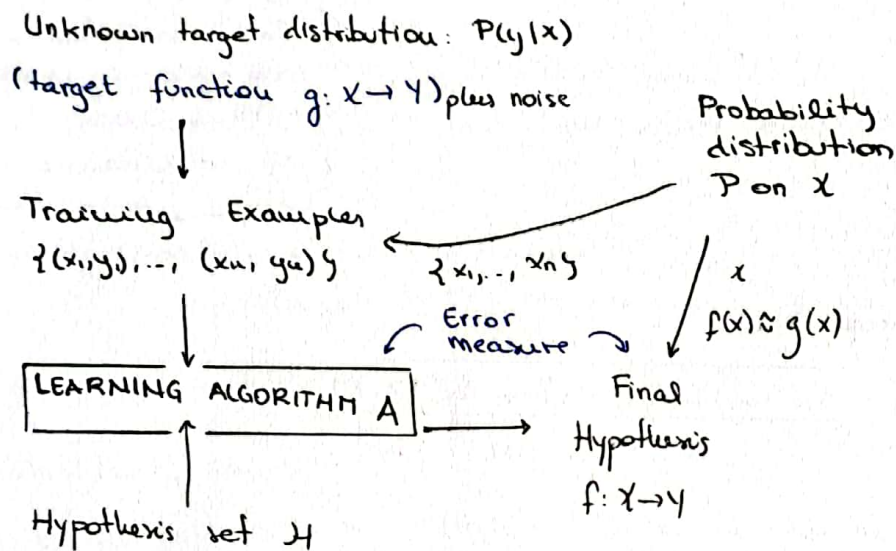 Unknown target distribution: P(y|x)
(target function g: X → Y) plus noise
Probability
distribution
P on X
Training Examples
{(x₁,y₁),..., (xn, yn)}
{x₁,..., xn}
x
f(x) ≈ g(x)
Error
measure
LEARNING ALGORITHM A
Final
Hypothesis
f: X → Y
Hypothesis set H